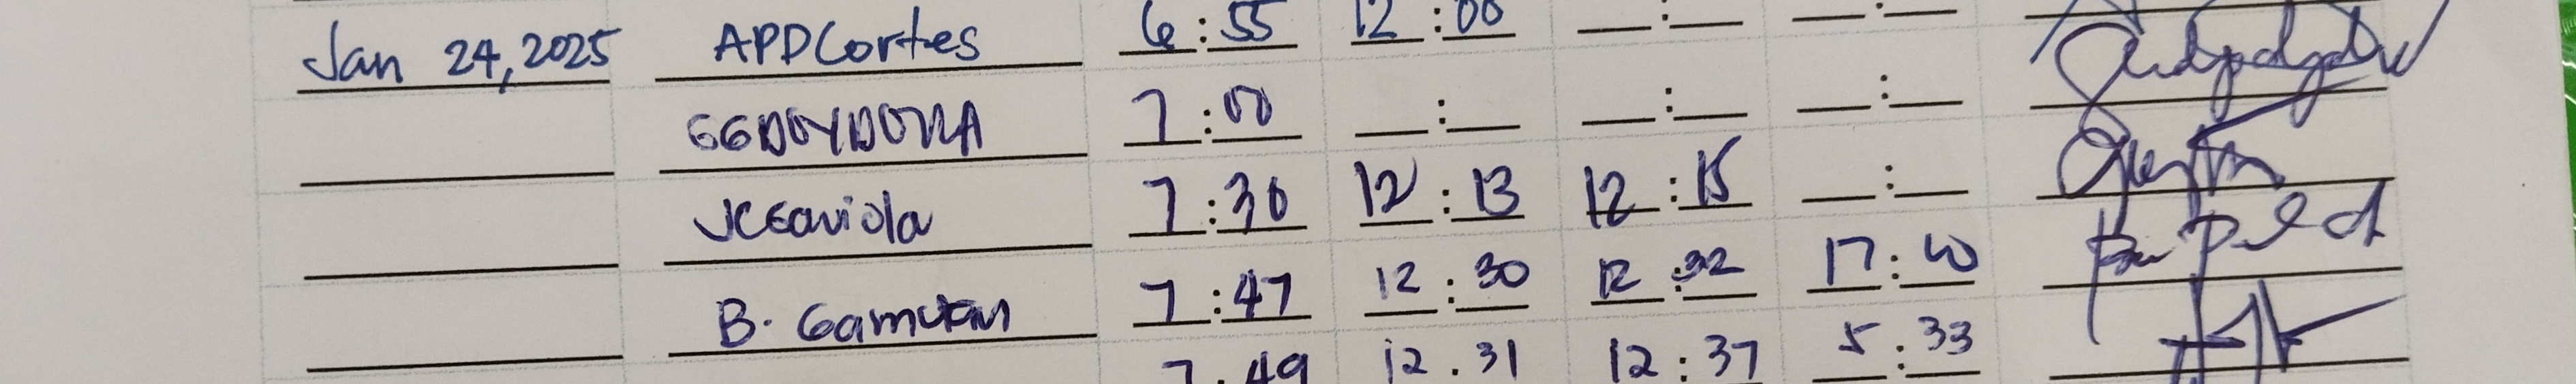 Jan 24, 2025 APDCortes 6:55 12:00 __:__ __:__
GGDOYDORA 7:00 __:__ __:__ __:__
JCGaviola 7:30 12:13 12:15 __:__
B. Gamutan 7:47 12:30 12:32 17:40
7:49 12:31 12:37 5:33